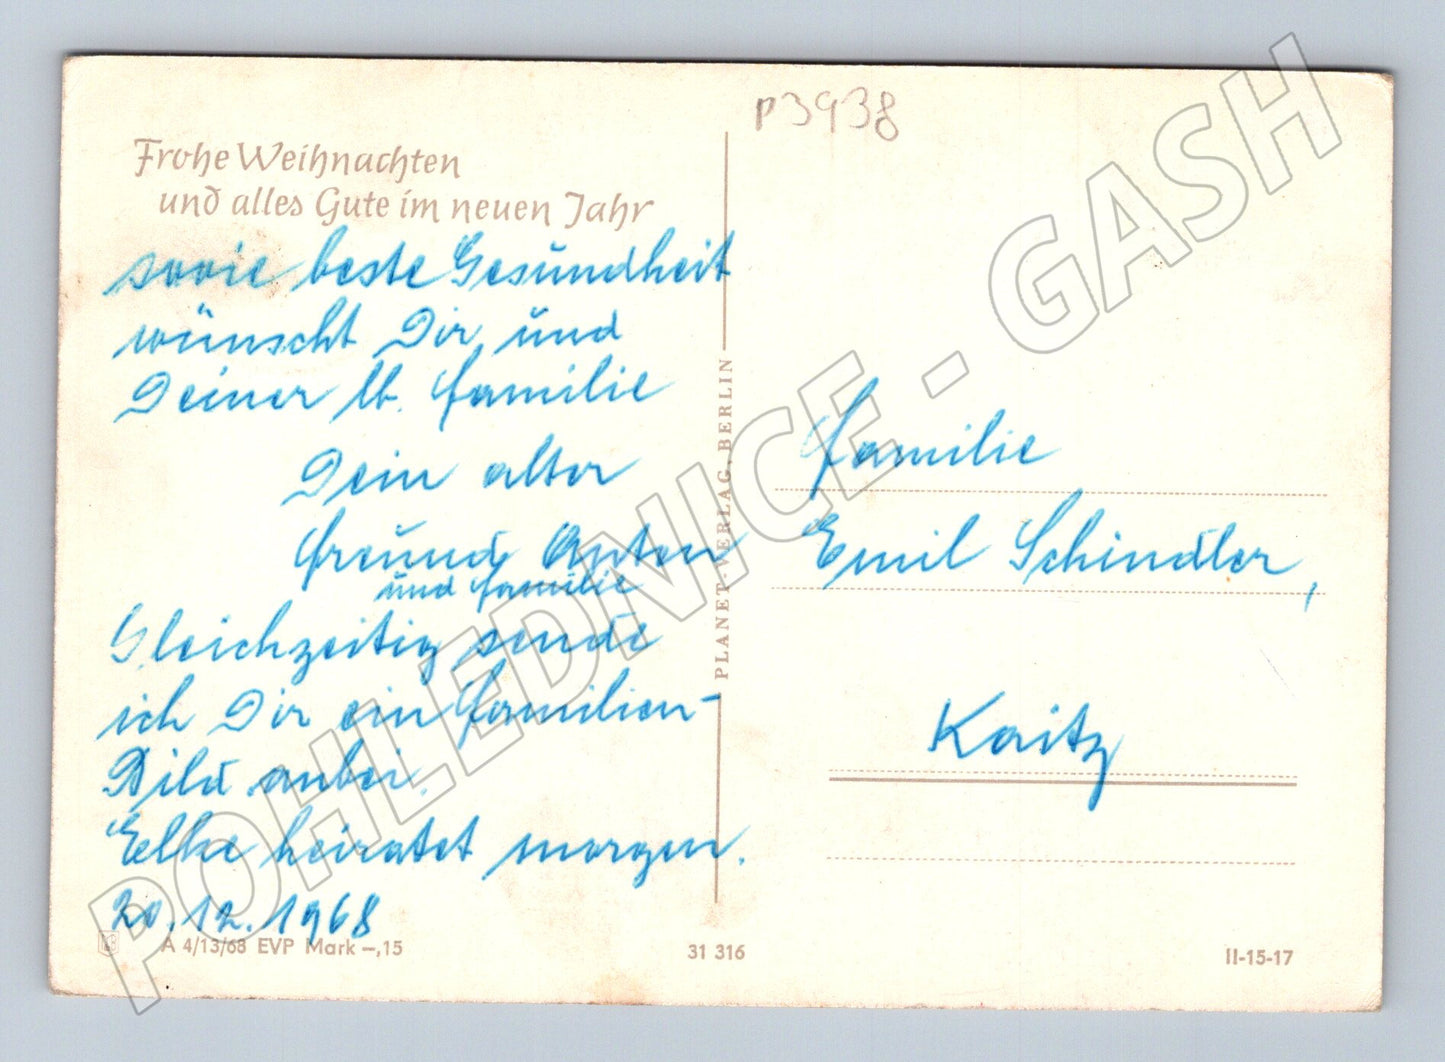 p3938
Frohe Weihnachten
und alles Gute im neuen Jahr
sowie beste Gesundheit
wünscht Dir und
Deiner lb. Familie
Dein alter
Freund Anton
und Familie
Gleichzeitig sende
ich Dir ein Familien-
Bild anbei.
Elke heiratet morgen.
20.12.1968
A 4/13/68 EVP Mark –,15
PLANET-VERLAG, BERLIN
31 316
Familie
Emil Schindler,
Kaitz
II-15-17
POHLEDNICE - GASH